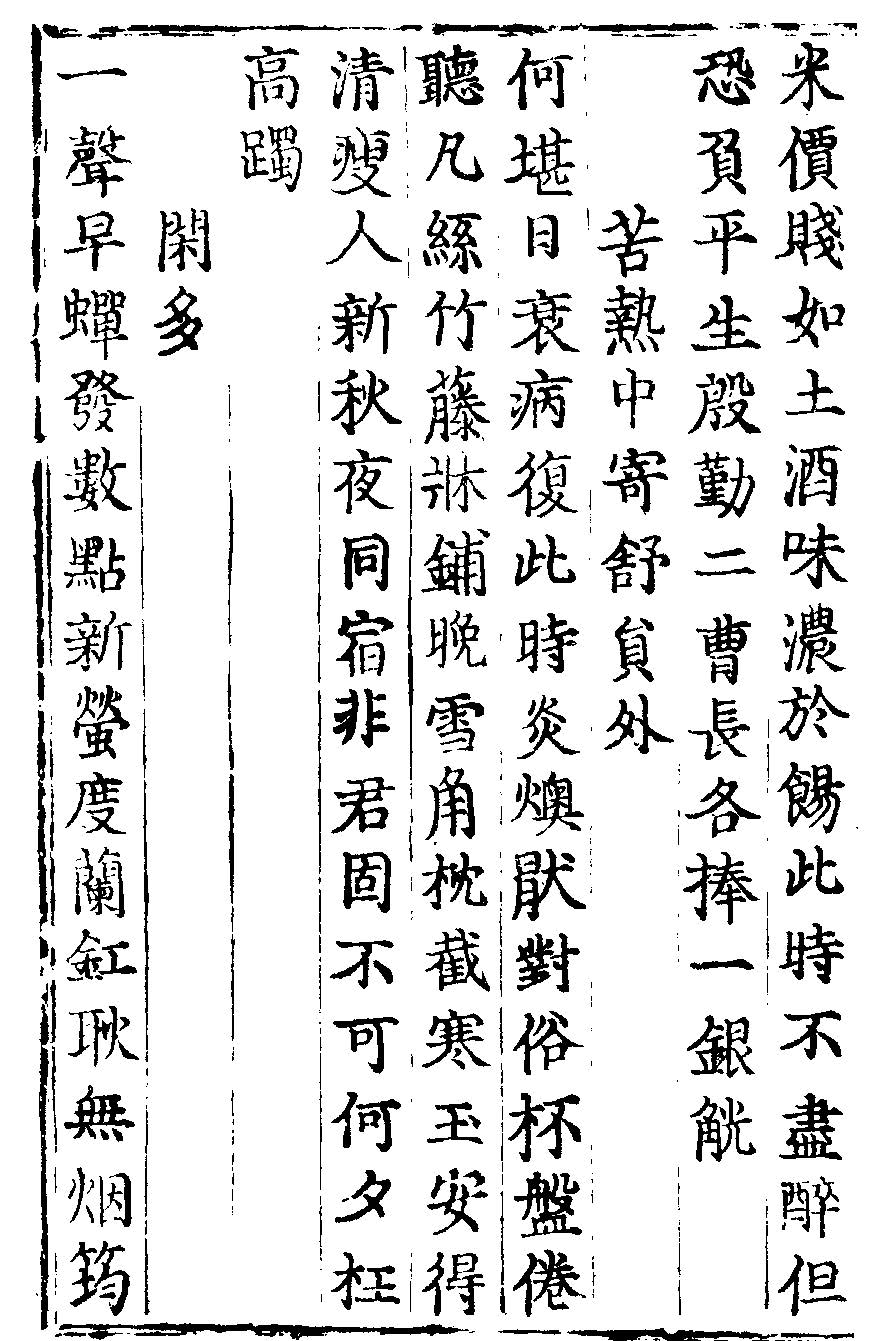 米價賤如土酒味濃於餳此時不盡醉但
恐負平生殷勤二曹長各捧一銀觥
苦熱中寄舒員外
何堪日衰病復此時炎燠厭對俗杯盤倦
聽凡絲竹藤牀鋪晚雪角枕截寒玉安得
清瘦人新秋夜同宿非君固不可何夕枉
高躅
閑多
一聲早蟬發數點新螢度蘭釭耿無烟筠